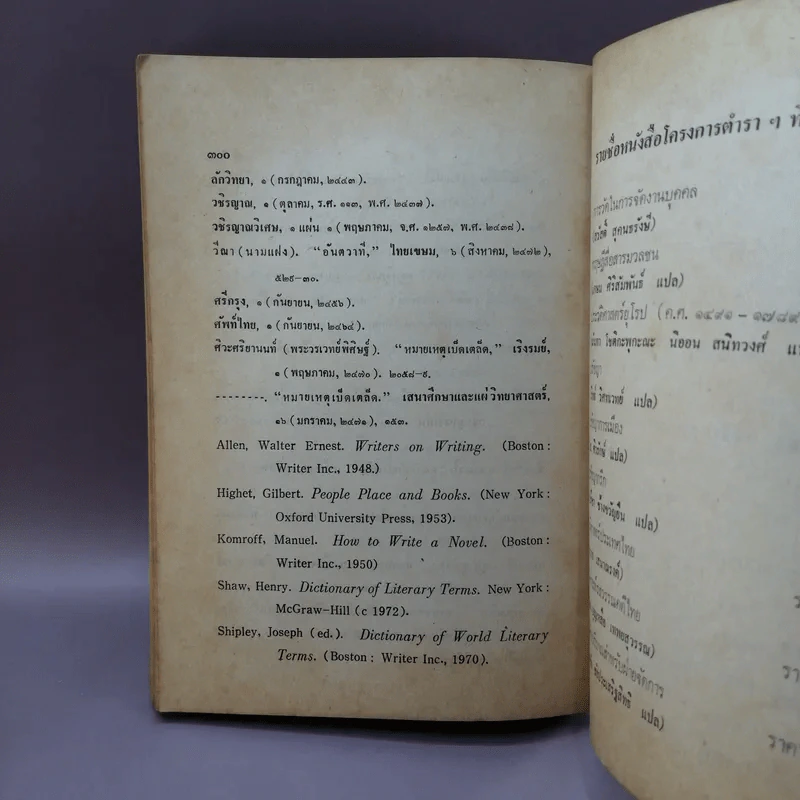 ๓๐๐
ลักวิทยา, ๑ (กรกฎาคม, ๒๔๔๓).
วชิรญาณ, ๑ (ตุลาคม, ร.ศ. ๑๑๓, พ.ศ. ๒๔๓๗).
วชิรญาณวิเศษ, ๑ แผ่น ๑ (พฤษภาคม, จ.ศ. ๑๒๕๗, พ.ศ. ๒๔๓๘).
วีณา (นามแฝง). "อันตวาที่," ไทยเขษม, ๖ (สิงหาคม, ๒๔๗๒),
๕๒๙-๓๐.
ศรีกรุง, ๑ (กันยายน, ๒๔๕๖).
ศัพท์ไทย, ๑ (กันยายน, ๒๔๖๔).
ศิวะศริยานนท์ (พระวรเวทย์พิศิษฐ์). "หมายเหตุเบ็ดเตล็ด," เริงรมย์,
๑ (พฤษภาคม, ๒๔๗๐). ๒๐๕๘-๙.
--------. "หมายเหตุเบ็ดเตล็ด." เสนาศึกษาและแผ่วิทยาศาสตร์,
๑๖ (มกราคม, ๒๔๗๑), ๑๕๓.
Allen, Walter Ernest. Writers on Writing. (Boston:
Writer Inc., 1948.)
Highet, Gilbert. People Place and Books. (New York:
Oxford University Press, 1953).
Komroff, Manuel. How to Write a Novel. (Boston:
Writer Inc., 1950)
Shaw, Henry. Dictionary of Literary Terms. New York:
McGraw-Hill (c 1972).
Shipley, Joseph (ed.). Dictionary of World Literary
Terms. (Boston: Writer Inc., 1970).
รายชื่อหนังสือโครงการตำรา ๆ
การวัดในการจัดงานบุคคล
สุคนธรังษี)
สื่อสารมวลชน
ศิริสัมพันธ์ แปล)
ยุโรป (ค.ศ. ๑๔๙๑ - ๑๗๘๙
โชติกะพุกะณะ นิออน สนิทวงศ์
วิศทเวทย์ แปล)
การเมือง
แปล)
ช้างขวัญยืน แปล)
ประเทศไทย
วรรณคดีไทย
สำหรับฝ่ายจัดการ
แปล)